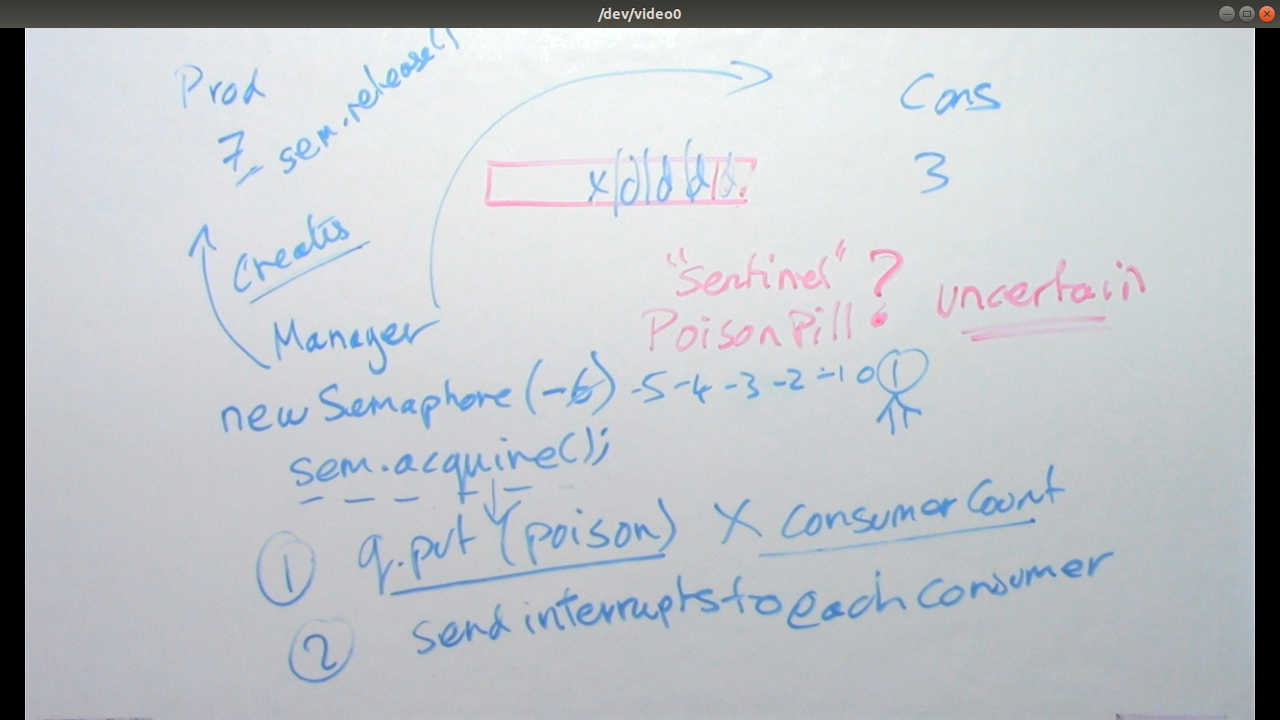 /dev/video0
Prod
Cons
7 sem.release()
3
x|d|d|d|d
Creates
"Sentinel" ?
Poison Pill
uncertain
Manager
new Semaphore (-6) -5 -4 -3 -2 -1 0 1
sem.acquire();
1 q.put (poison) X consumerCount
2 send interrupts to each consumer